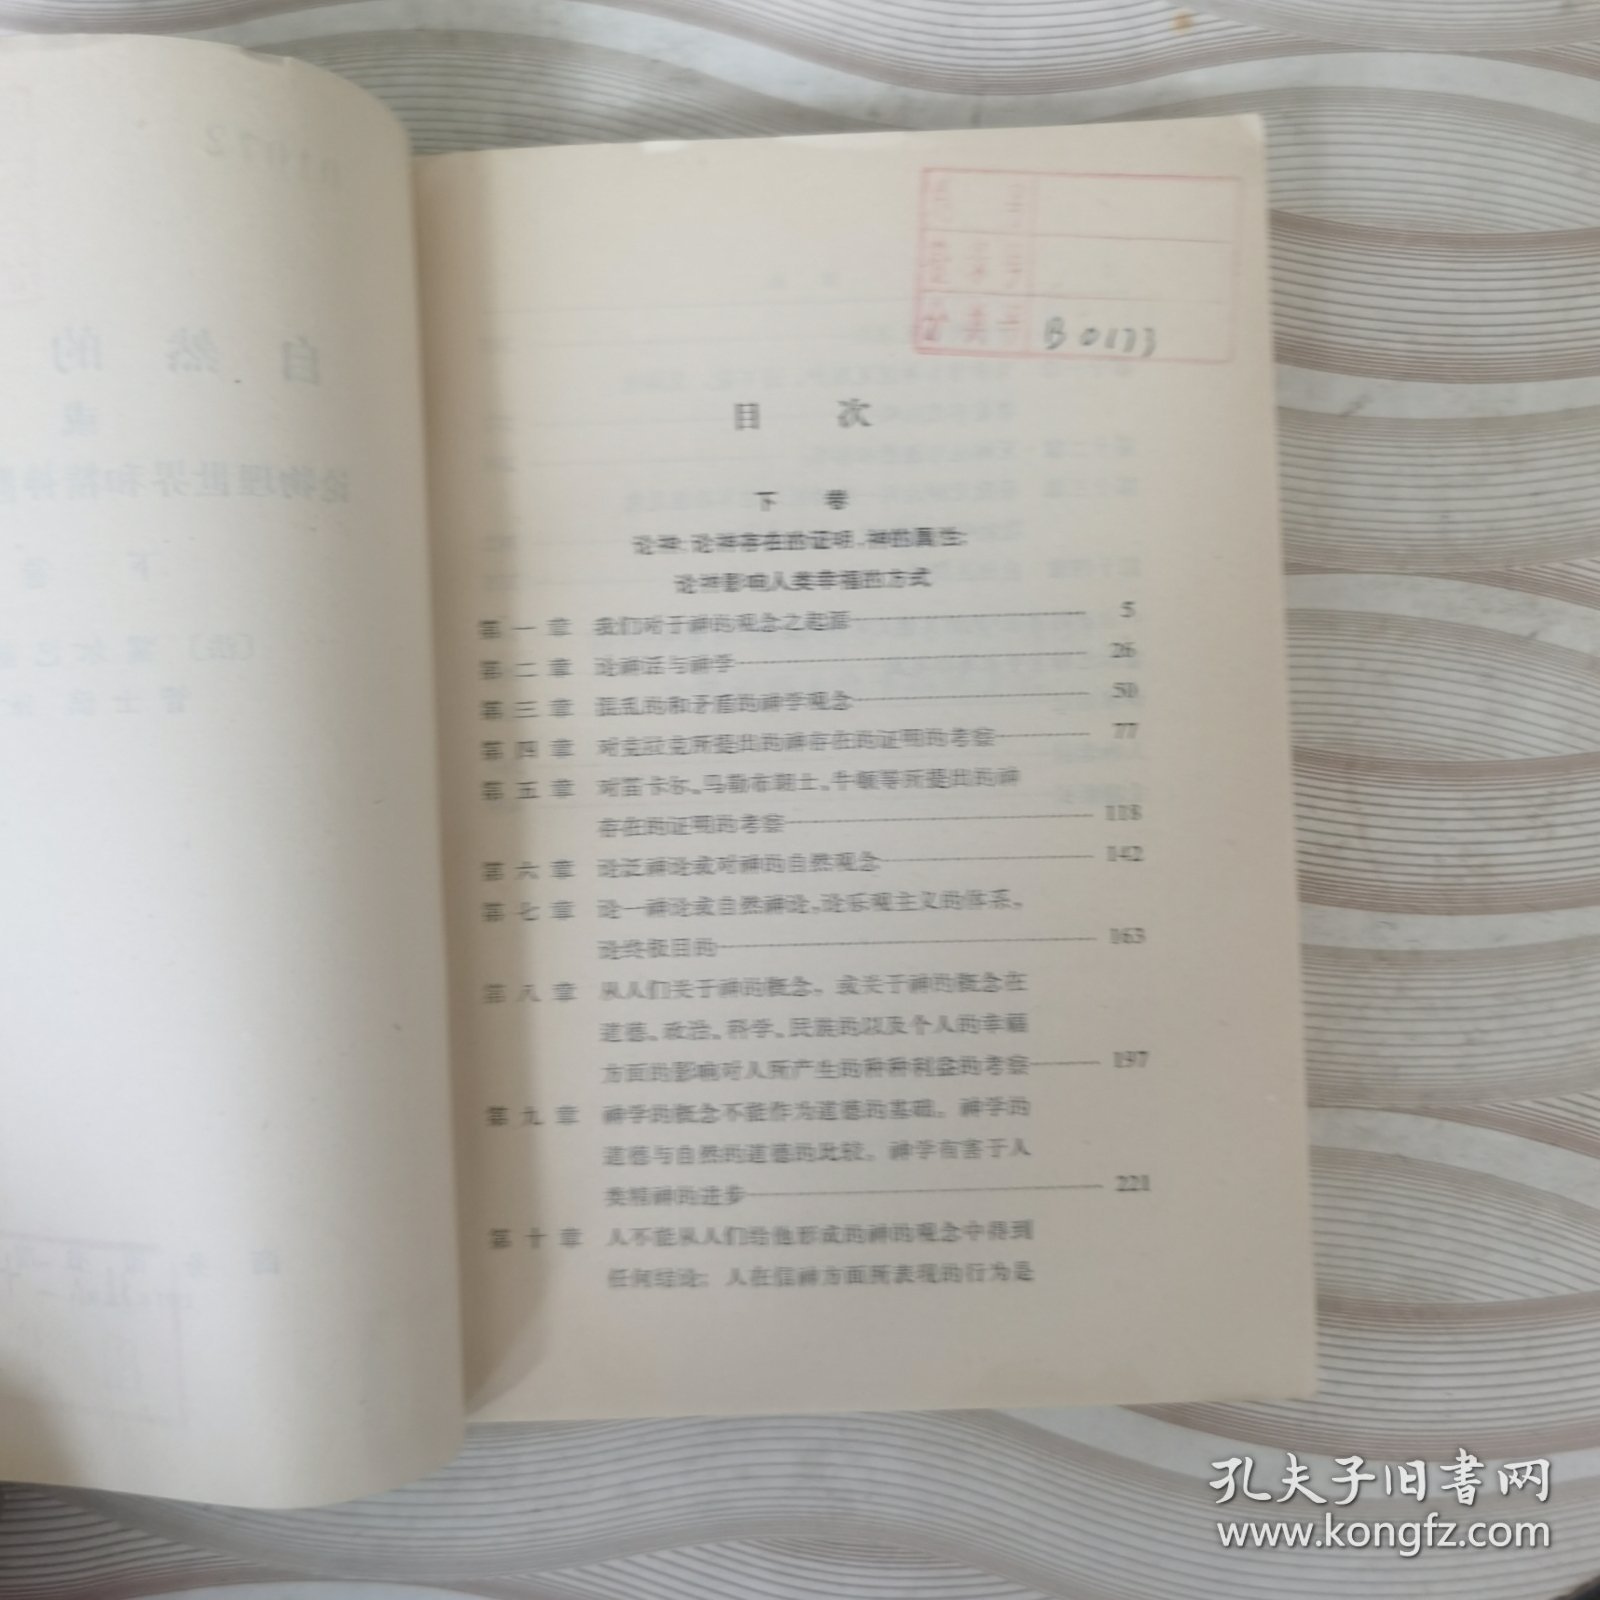 自然的
或
论物理世界和精神
下
管士滨
分类号 B0173
目次
下卷
论神；论神存在的证明，神的属性；
论神影响人类幸福的方式
第一章 我们对于神的观念之起源 5
第二章 论神话与神学 26
第三章 混乱的和矛盾的神学观念 50
第四章 对克拉克所提出的神存在的证明的考察 77
第五章 对笛卡尔、马勒布朗士、牛顿等所提出的神
存在的证明的考察 118
第六章 论泛神论或对神的自然观念 142
第七章 论一神论或自然神论，论乐观主义的体系，
论终极目的 163
第八章 从人们关于神的概念，或关于神的概念在
道德、政治、科学、民族的以及个人的幸福
方面的影响对人所产生的种种利益的考察 197
第九章 神学的概念不能作为道德的基础。神学的
道德与自然的道德的比较。神学有害于人
类精神的进步 221
第十章 人不能从人们给他形成的神的观念中得到
任何结论；人在信神方面所表现的行为是
孔夫子旧书网
www.kongfz.com